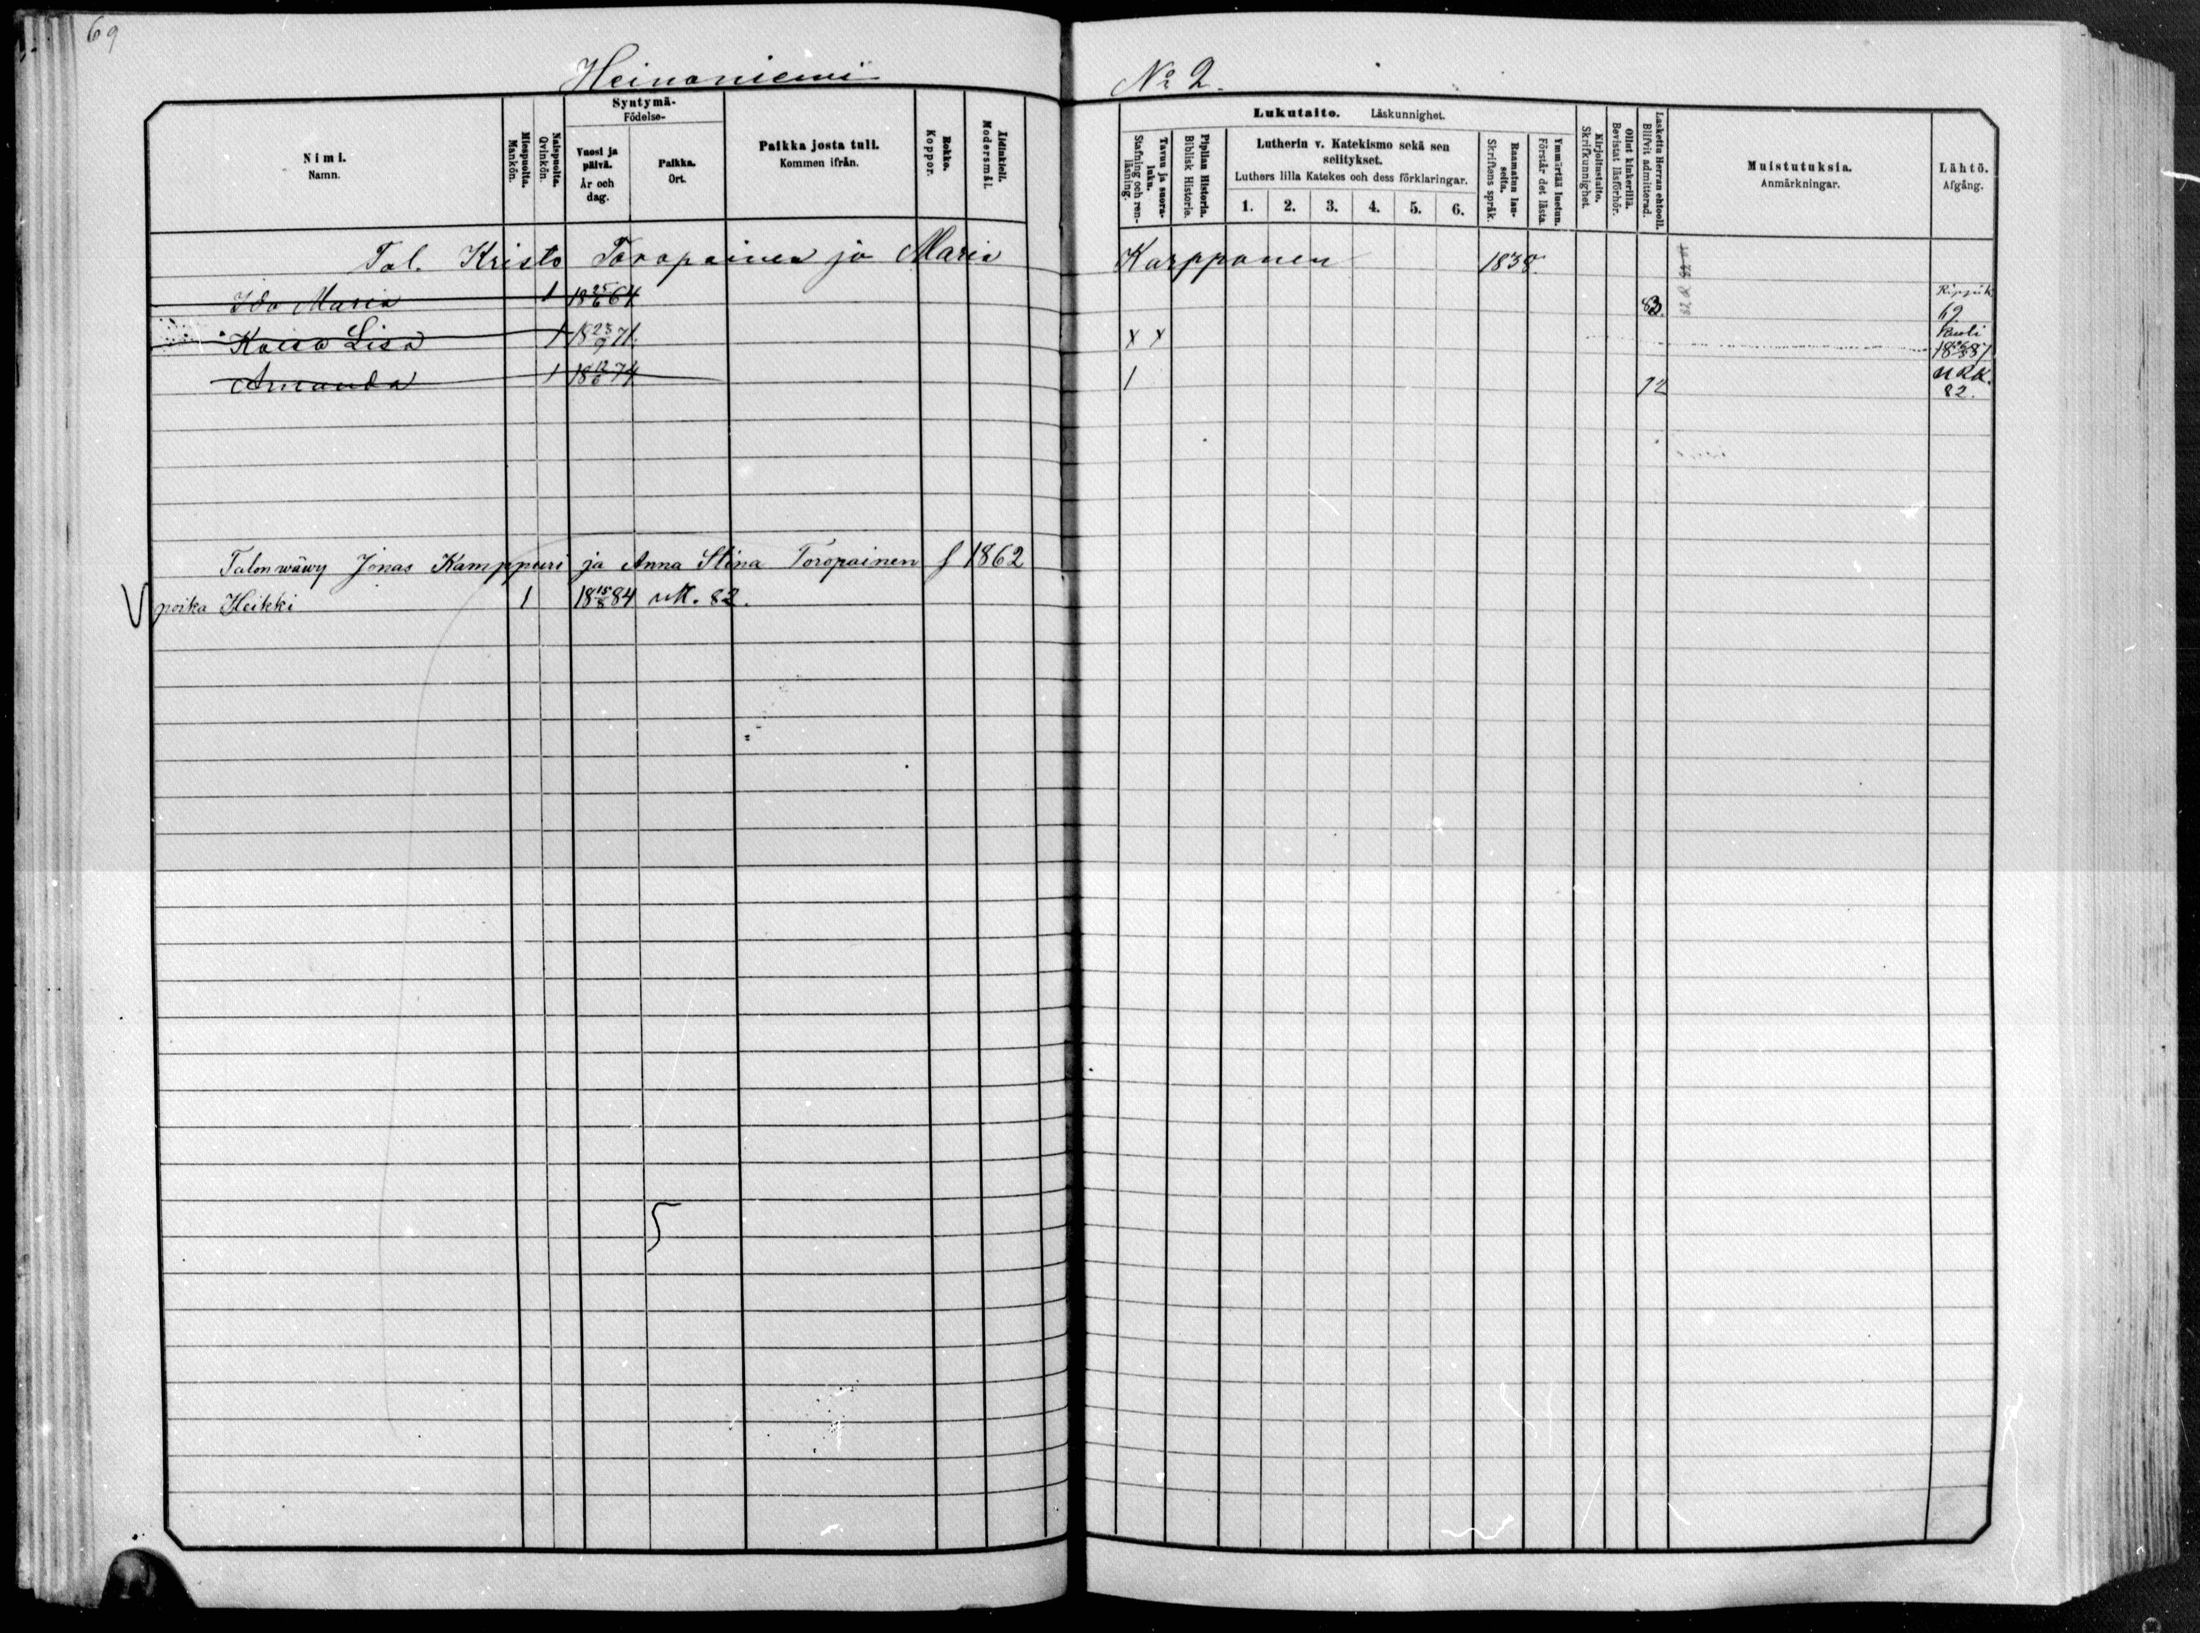 69
Heinoniemi No 2.
Nimi. Namn.
Miespuolta. Mankön.
Naispuolta. Qvinkön.
Syntymä- Födelse-
Vuosi ja päivä. År och dag.
Paikka. Ort.
Paikka josta tuli. Kommen ifrån.
Rokko. Koppor.
Äidinkieli. Modersmål.
Lukutaito. Läskunnighet.
Tavuu ja suora-luku. Stafning och ren-läsning.
Piplian Historia. Biblisk Historie.
Lutherin v. Katekismo sekä sen selitykset.
Luthers lilla Katekes och dess förklaringar.
1. 2. 3. 4. 5. 6.
Raamatun lau-seita. Skriftens språk.
Ymmärtää luetun. Förstår det lästa.
Kirjoitustaito. Skrifkunnighet.
Ollut kinkerillä. Bevistat läsförhör.
Laskettu Herran ehtoolle. Blifvit admitterad.
Muistutuksia. Anmärkningar.
Lähtö. Afgång.
Tal. Kristo Toropainen ja Maria Karppanen 1838.
Ida Maria 1 18 25/6 64 83. Rippik. 69
Kaisa Lisa 1 18 23/9 71. x x kuoli 18 26/5 87
Amanda 1 18 12/6 74 1 12 URK. 82.
Talonwäwy Jonas Kamppuri ja Anna Stina Toropainen f 1862
V poika Heikki 1 18 15/8 84 rk. 82.
5